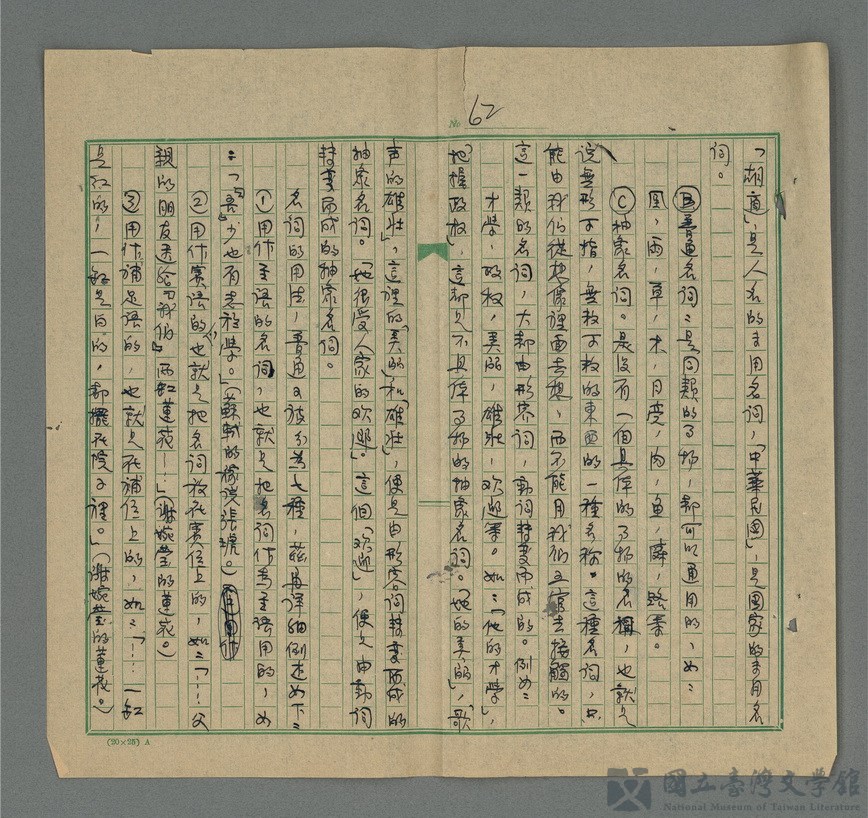 No. 62
「胡適」，是人名的專用名詞，「中華民國」，是國家的專用名
詞。
Ⓑ普通名詞：是同類的事物，都可以通用的，如：
風，雨，草，木，月亮，肉，魚，磚，路等。
Ⓒ抽象名詞。是沒有一個具体的事物的名稱，也就是
說無形可指，無数可数的東西的一種名称。這種名詞，只
能由我们從想像裡面去想，而不能用我们五官去接觸的。
這一類的名詞，大都由形容詞，動詞轉變而成的。例如：
才學，政权，美的，雄壯，欢迎等。如：「他的才學」，
「把握政权」，這都是不具体事物的抽象名詞。「她的美的」，「歌
声的雄壯」，這裡的「美的」和「雄壯」，便是由形容詞轉變而成的
抽象名詞。「他很受人家的欢迎」。這個「欢迎」，便是由動詞
轉變而成的抽象名詞。
名詞的用法，普通又被分為七種，茲再详細例述如下：
①用作主語的名詞，也就是把名詞作為主語用的，如
：「『吾』少也有志於學。」（蘇軾的稼说送張琥。）
②用作賓語的，也就是把名詞放在賓位上的，如：「……父
親的朋友送给『我們』兩缸蓮花……」（谢婉莹的蓮花。）
③用作補足語的，也就是在補位上的，如：「……一缸
是紅的，一缸是白的，都擺在院子裡。」（谢婉莹的蓮花。）
(20×25) A
國立臺灣文學館
National Museum of Taiwan Literature